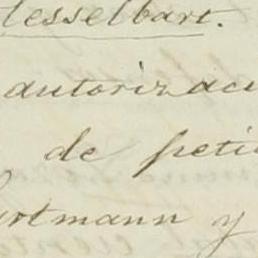 tesselbart.
autorizac
de peti
urtmann y